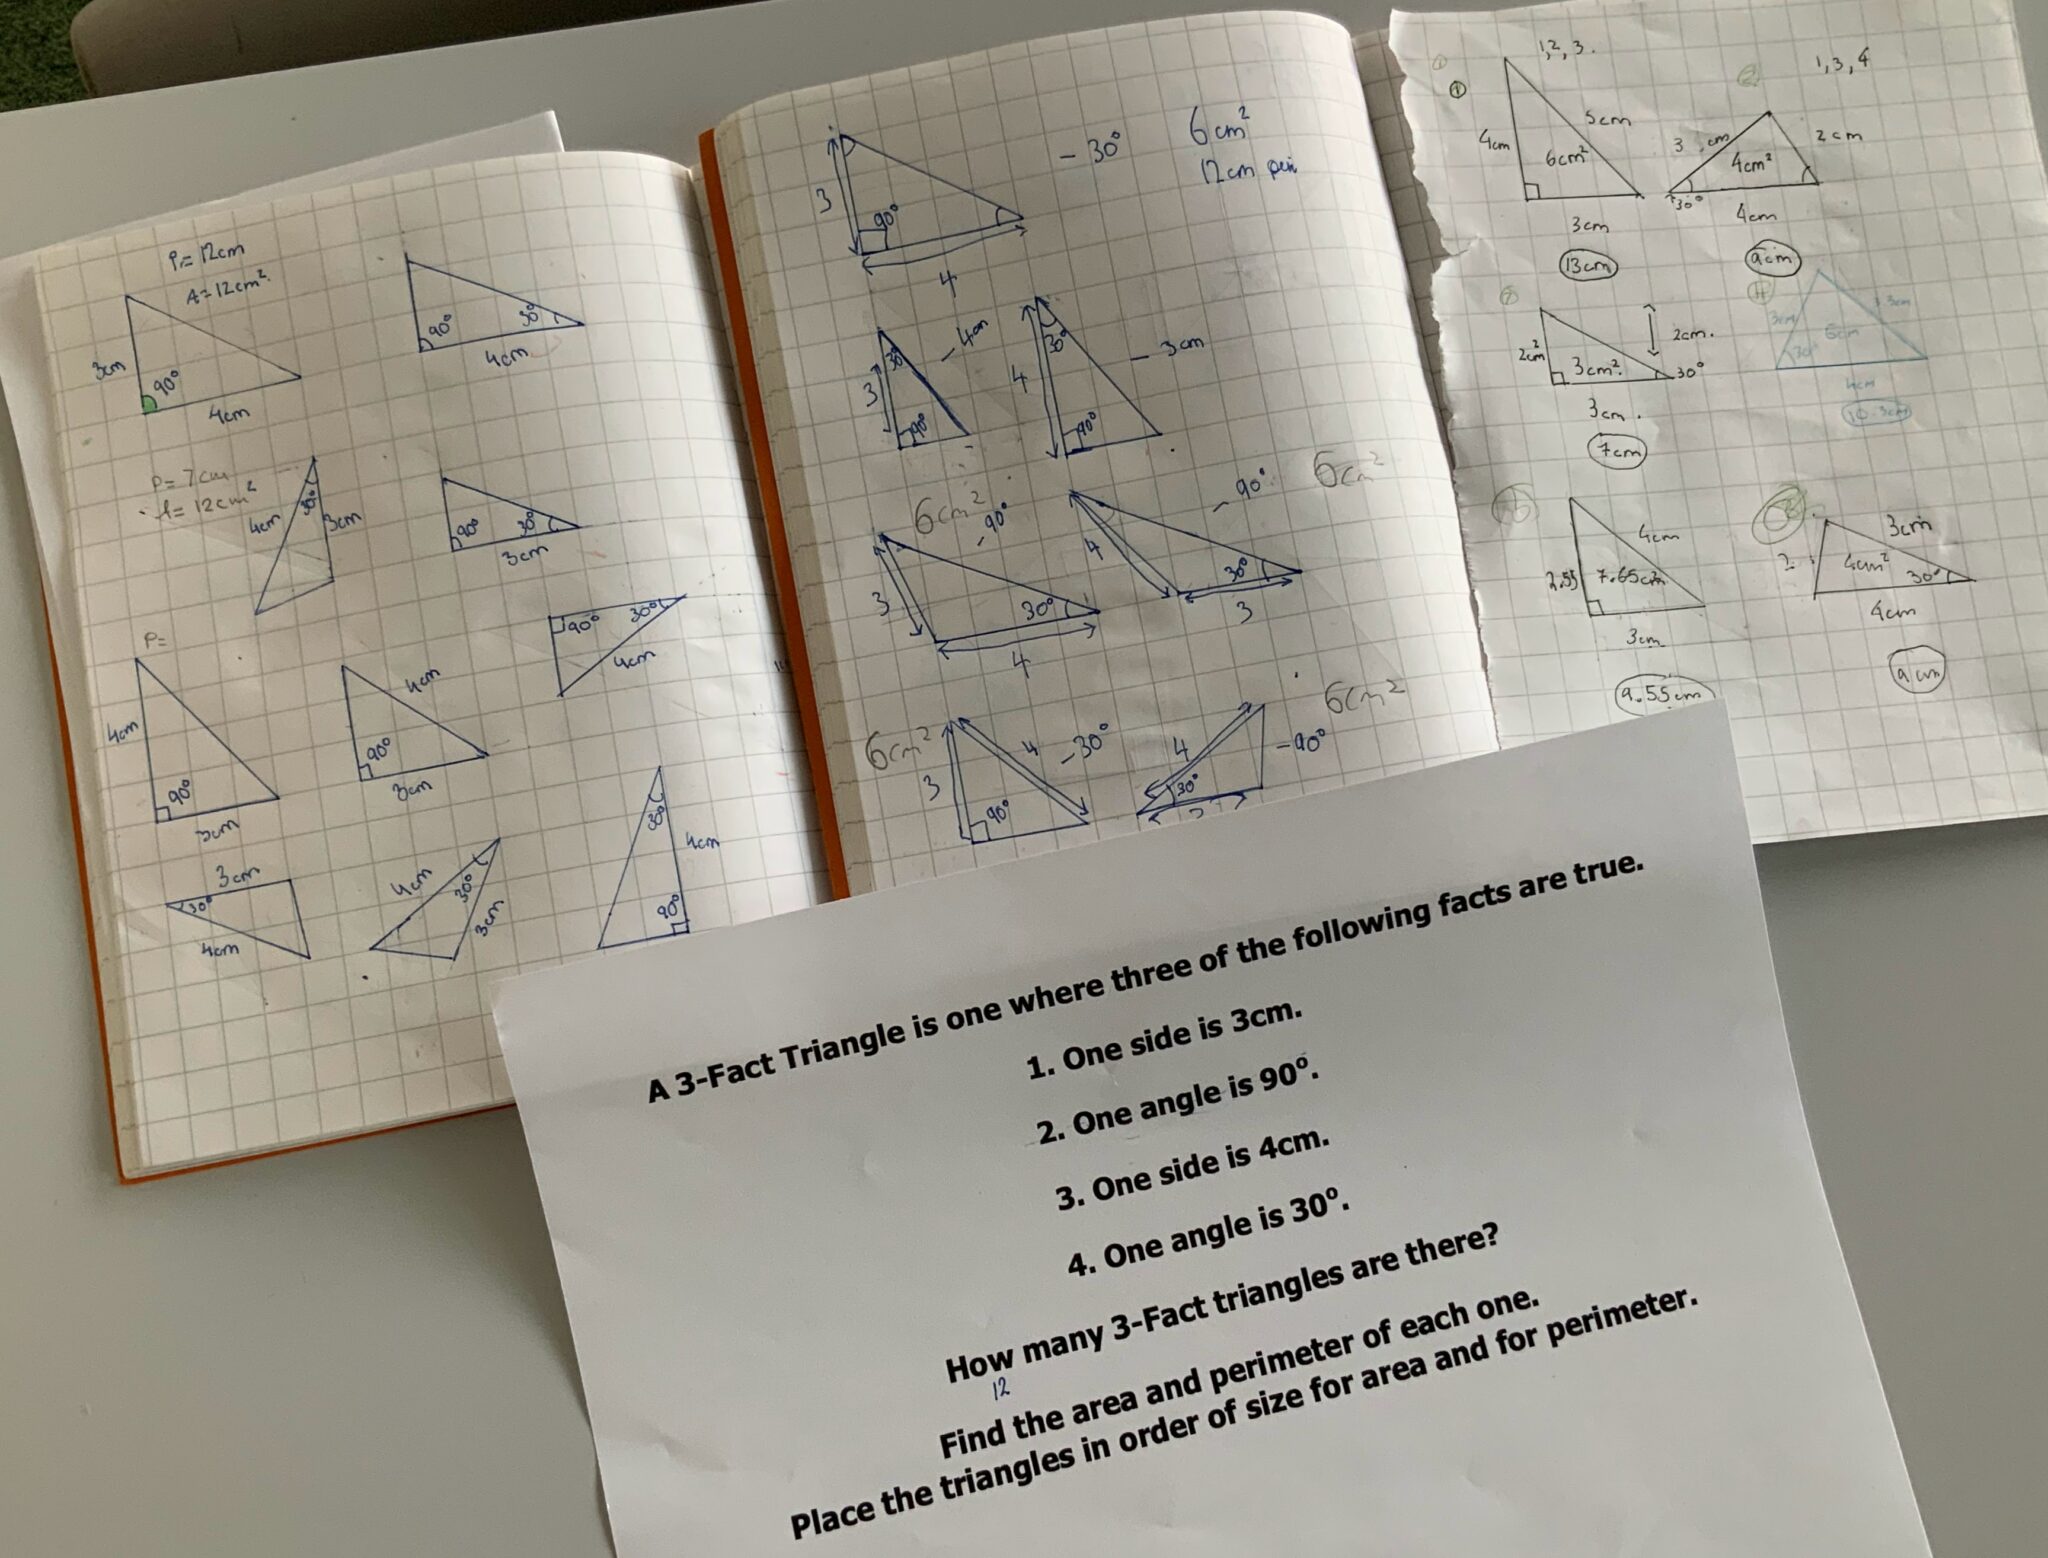 P= 12cm
A=12cm²
3cm
90°
4cm
90°
30°
4cm
P= 7cm
A= 12cm²
4cm
30°
3cm
90°
30°
3cm
90°
30°
4cm
P=
4cm
90°
3cm
4cm
90°
3cm
30°
4cm
90°
3cm
30°
4cm
4cm
30°
3cm
- 30°
6cm²
12cm peri
3
90°
4
30°
3
90°
- 4cm
4
30°
90°
- 3cm
6cm²
- 90°
3
30°
4
- 90°
6cm²
4
30°
3
6cm²
3
4
- 30°
90°
6cm²
4
30°
- 90°
1,2,3.
4cm
5cm
6cm²
3cm
13cm
1,3,4
3 cm
2cm
4cm²
30°
4cm
9cm
2cm²
3cm².
2cm.
30°
3cm.
7cm
3cm
3.3cm
6cm
30°
4cm
10.3cm
4cm
2.55
7.65cm²
3cm
9.55cm
3cm
2
4cm²
30°
4cm
9cm
A 3-Fact Triangle is one where three of the following facts are true.
1. One side is 3cm.
2. One angle is 90°.
3. One side is 4cm.
4. One angle is 30°.
How many 3-Fact triangles are there?
12
Find the area and perimeter of each one.
Place the triangles in order of size for area and for perimeter.